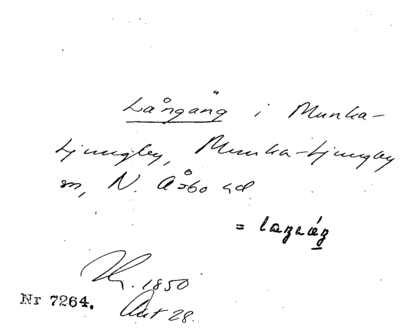 Långäng i Munka-
Ljungby, Munka-Ljungby
sn, N. Åsbo hd.
=
1850
Nr 7264. Akt 28.